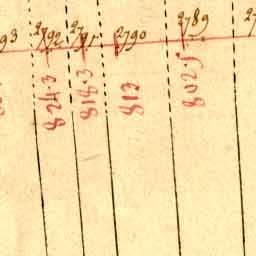 93 2792 2791 2790 2789 27
824.3 818.3 813 802.5